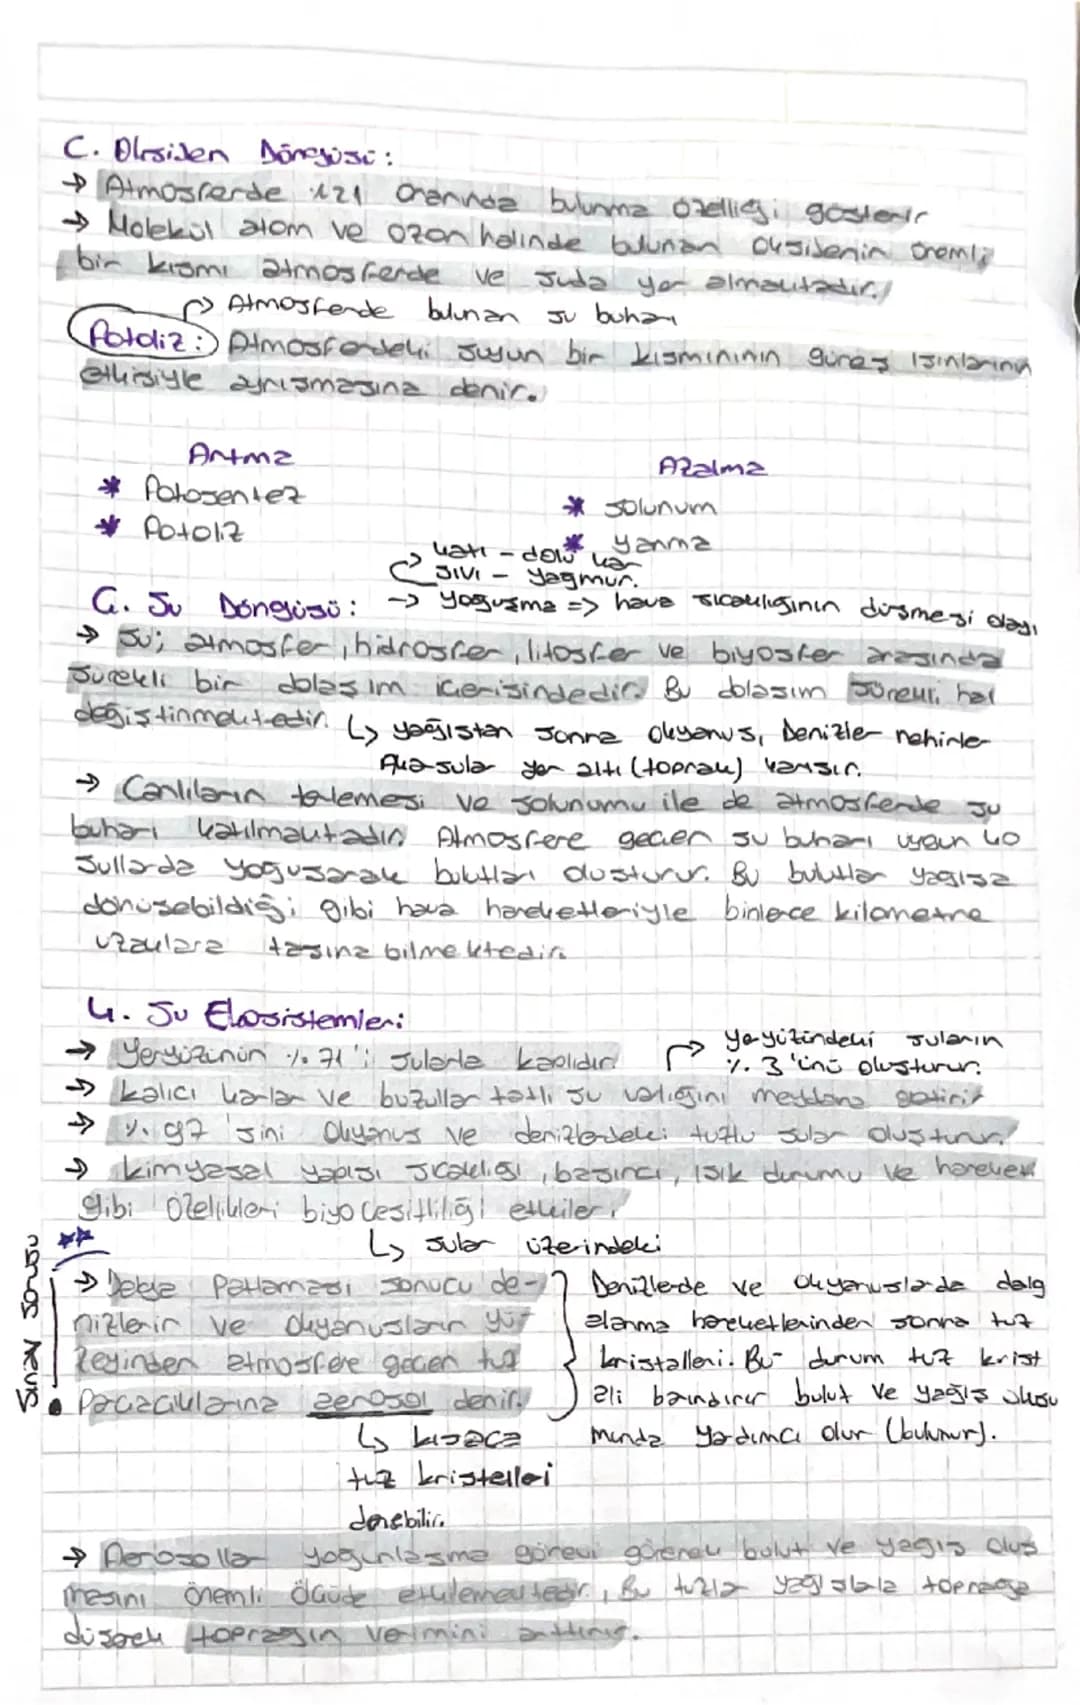 C. Oksijen Döngüsü:
→ Atmosferde %21 oranında bulunma özelliği gösterir
→ Molekül atom ve ozon halinde bulunan Oksijenin önemli
bir kısmı atmosferde ve suda yer almaktadır.
↱ Atmosferde bulunan su buharı
Fotoliz: Atmosferdeki suyun bir kısmınının güneş ışınlarının
etkisiyle ayrışmasına denir.
Artma
Azalma
* Fotosentez
* solunum
* Fotoliz
* yanma
katı - dolu kar
sıvı - yağmur.
Ç. Su Döngüsü: → yoğuşma => hava sıcaklığının düşmesi olayı
→ Su; atmosfer, hidrosfer, litosfer ve biyosfer arasında
sürekli bir dolaşım içerisindedir. Bu dolaşım sürekli hal
değiştirmektedir. ↳ yağıştan sonra okyanus, Denizler nehirler
Akarsular yer altı (toprak) karışır.
→ Canlıların terlemesi ve solunumu ile de atmosferde su
buharı katılmaktadır. Atmosfere geçen su buharı uygun ko
şullarda yoğuşarak bulutları oluşturur. Bu bulutlar yağışa
dönüşebildiği gibi hava hareketleriyle binlerce kilometre
uzaklara taşına bilmektedir.
4. Su Ekosistemleri:
→ Yeryüzünün %71'i sularla kaplıdır.
↱ yeryüzündeki suların
%3'ünü oluşturur.
→ kalıcı karlar ve buzullar tatlı su varlığını meydana getirir
→ %97'sini Okyanus ve denizlerdeki tuzlu sular oluşturur.
→ kimyasal yapısı sıcaklığı, basıncı, ışık durumu ve hareket
gibi özellikleri biyoçeşitliliği etkiler.
↳ sular üzerindeki
Sınav sorusu
**
→ Dalga Patlaması sonucu de-
nizlerin ve okyanusların yü
zeyinden atmosfere geçen tuz
Parçacıklarına aerosol denir.
↳ kısaca
tuz kristalleri
denebilir.
Denizlerde ve okyanuslarda dalg
alanma hareketlerinden sonra tuz
kristalleri. Bu durum tuz krist
ali barındırır bulut ve yağış oluşu
munda yardımcı olur (bulunur).
→ Aerosoller yoğunlaşma görevi görerek bulut ve yağış oluş
masını önemli ölçüde etkilemektedir., Bu tuzlar yağışlarla toprağa
düşerek toprağın verimini arttırır.